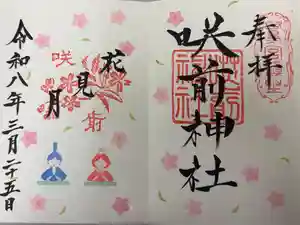 奉拝
咲前神社
花見月
咲
前
令和八年三月二十五日